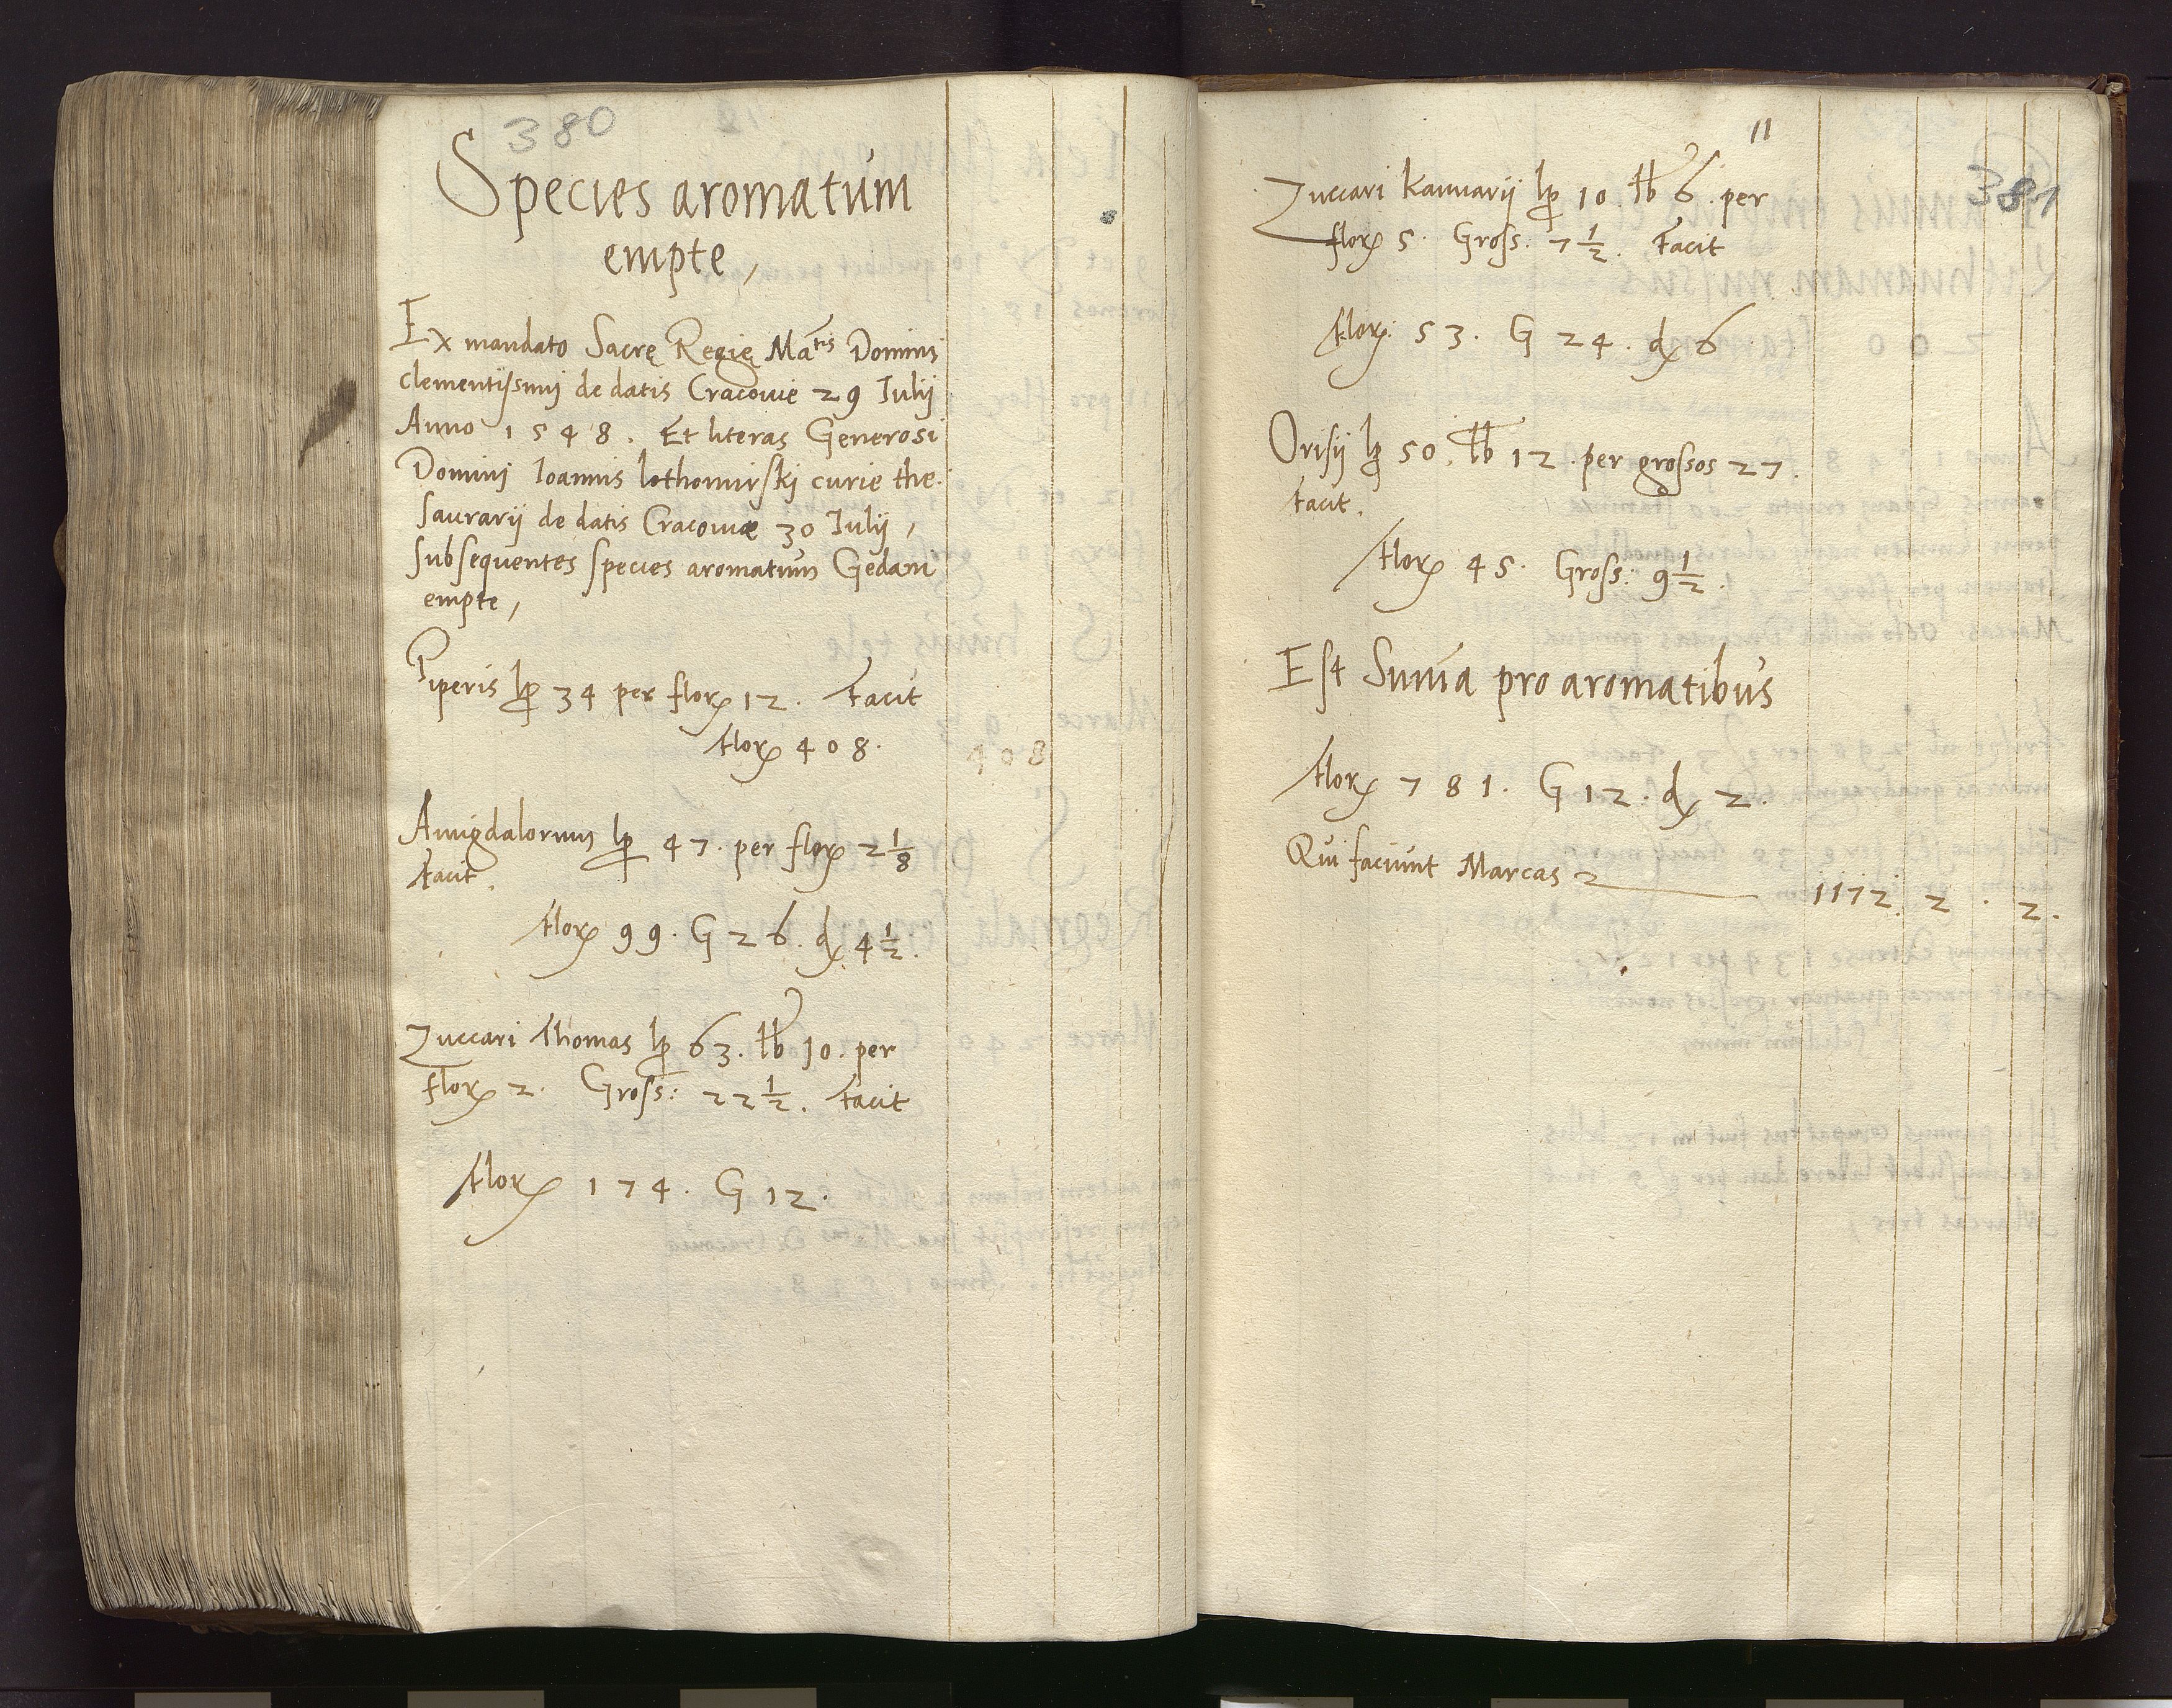 380
Species aromatum
empte,
Ex mandato Sacrę Regię Matis Domini
clementissimj de datis Cracovie 29 Iulij
Anno 1548. Et literas Generosi
Dominj Ioannis lothomirskj curie the.
saurarij de datis Cracoviæ 30 Iulij,
subsequentes species aromatum Gedani
empte,
Piperis lp 34 per flor 12. facit
flor 408.
408
Amigdalorum lp 47. per flor 2 1/8
facit.
flor 99. G 26. d 4 1/2.
Zuccari Thomas lp 63. lb 10. per
flor 2. Gross: 22 1/2. facit
flor 174. G 12.
11
381
Zuccari kanuarij lp 10 lb 6. per
flor 5. Gross: 7 1/2. facit
flor: 53. G 24. d 6.
Orisij lp 50. lb 12. per grossos 27.
facit.
flor 45. Gross: 9 1/2.
Est Suma pro aromatibus
flor 781. G 12. d 2.
Qui faciunt Marcas 1172. 2. 2.